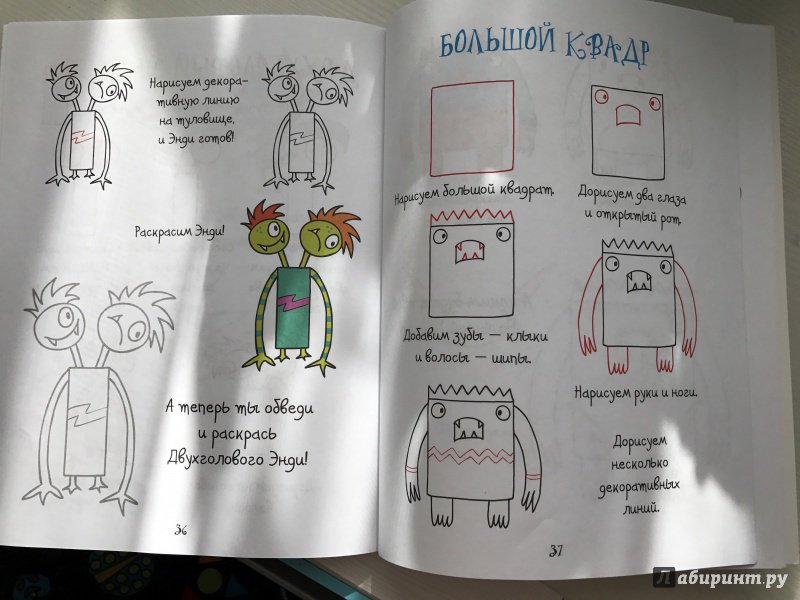 Нарисуем декора-
тивную линию
на туловище,
и Энди готов!
Раскрасим Энди!
А теперь ты обведи
и раскрась
Двухголового Энди!
36
БОЛЬШОЙ КВАДР
Нарисуем большой квадрат.
Дорисуем два глаза
и открытый рот.
Добавим зубы — клыки
и волосы — шипы.
Нарисуем руки и ноги.
Дорисуем
несколько
декоративных
линий.
37
Лабиринт.ру